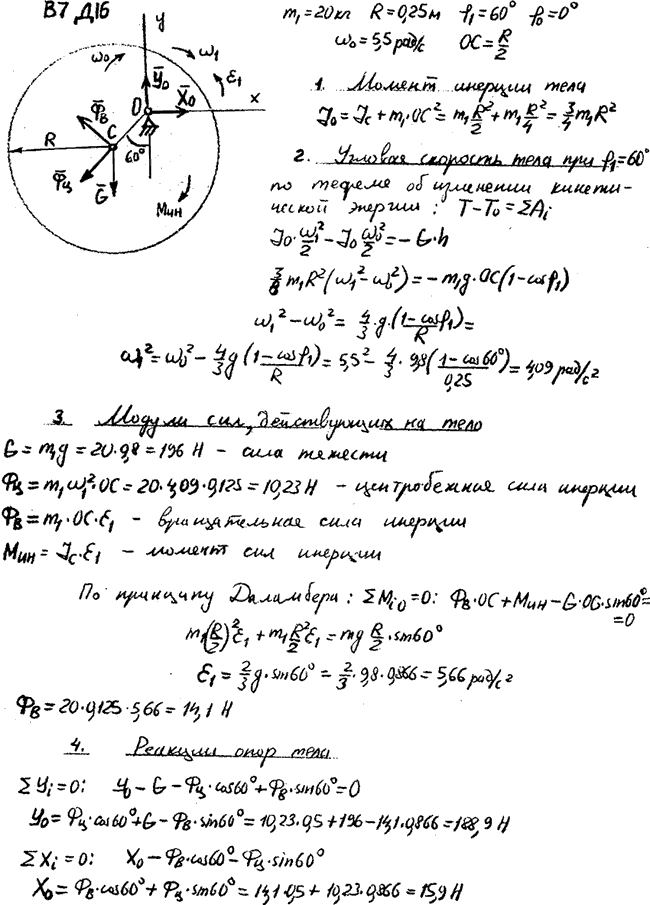 В7 Д16
m₁=20кг R=0,25м φ₁=60° φ₀=0°
ω₀=5,5 рад/с OC=R/2
y
ω₀
ω₁
Ȳ₀
ε₁
Φ̄в
O
X̄₀
x
R
C
60°
Φ̄ц
Ḡ
Мин
1. Момент инерции тела
J₀=Jc+m₁·OC²=m₁R²/2+m₁R²/4=3/4m₁R²
2. Угловая скорость тела при φ₁=60°
по теореме об изменении кинети-
ческой энергии: T-T₀=ΣAi
J₀·ω₁²/2-J₀ω₀²/2=-G·h
3/8m₁R²(ω₁²-ω₀²)=-m₁g·OC(1-cosφ₁)
ω₁²-ω₀²=4/3·g·(1-cosφ₁)/R=
ω₁²=ω₀²-4/3g(1-cosφ₁)/R=5,5²-4/3·9,8(1-cos60°)/0,25=4,09 рад/с²
3. Модули сил, действующих на тело
G=m₁g=20·9,8=196 Н - сила тяжести
Φц=m₁ω₁²·OC=20·4,09·0,125=10,23 Н - центробежная сила инерции
Φв=m₁·OC·ε₁ - вращательная сила инерции
Мин=Jc·ε₁ - момент сил инерции
По принципу Даламбера: ΣMi₀=0: Φв·OC+Мин-G·OC·sin60°=
=0
m₁(R/2)²ε₁+m₁R²/2ε₁=mg R/2·sin60°
ε₁=2/3g·sin60°=2/3·9,8·0,866=5,66 рад/с²
Φв=20·0,125·5,66=14,1 Н
4. Реакции опор тела
ΣYi=0: Y₀-G-Φц·cos60°+Φв·sin60°=0
Y₀=Φц·cos60°+G-Φв·sin60°=10,23·0,5+196-14,1·0,866=188,9 Н
ΣXi=0: X₀-Φв·cos60°-Φц·sin60°
X₀=Φв·cos60°+Φц·sin60°=14,1·0,5+10,23·0,866=15,9 Н